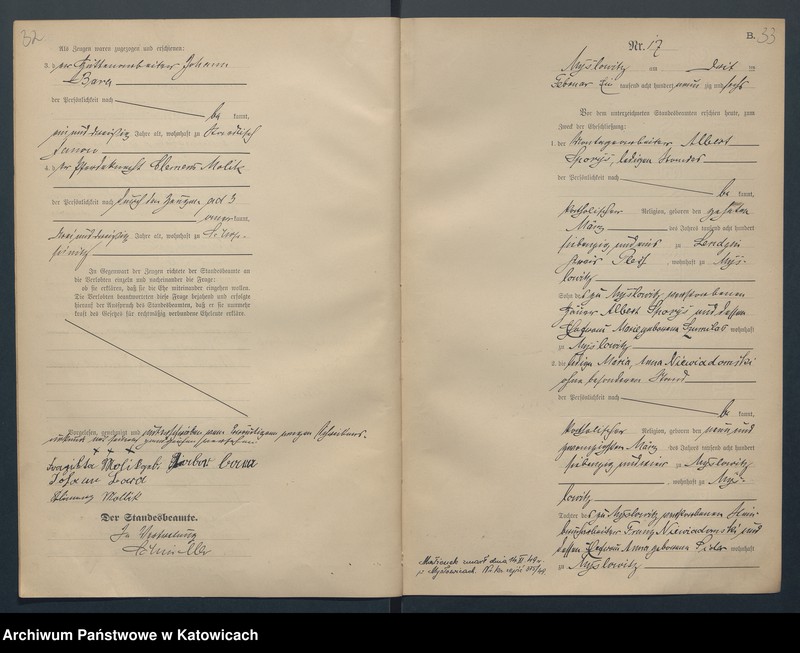 32
Als Zeugen waren zugezogen und erschienen:
3. der Hüttenarbeiter Johann
Bara
der Persönlichkeit nach
be kannt,
ein und dreißig Jahre alt, wohnhaft zu
Janow
4. der Pferdeknecht Clemens Molik
der Persönlichkeit nach durch den Zeugen ad 3
kannt,
Jahre alt, wohnhaft zu Schop-
pinitz
In Gegenwart der Zeugen richtete der Standesbeamte an
die Verlobten einzeln und nacheinander die Frage:
ob sie erklären, daß sie die Ehe miteinander eingehen wollen.
Die Verlobten beantworteten diese Frage bejahend und erfolgte
hierauf der Ausspruch des Standesbeamten, daß er sie nunmehr
kraft des Gesetzes für rechtmäßig verbundene Eheleute erkläre.
Vorgelesen, genehmigt und unterschrieben vom
+ + +
Johann Bara
Mollik
Der Standesbeamte.
In Vertretung
B.
33
Nr. 17
Myslowitz am drit ten
Februar Ein tausend acht hundert neun zig und sechs
Vor dem unterzeichneten Standesbeamten erschien heute, zum
Zweck der Eheschließung:
1. der Montagearbeiter Albert
Sporys, ledigen Standes
der Persönlichkeit nach
be kannt,
katholischer Religion, geboren den
März des Jahres tausend acht hundert
siebenzig und eins zu Lendzin
Kreis Pleß, wohnhaft zu Mys-
lowitz
Sohn des zu Myslowitz verstorbenen
Häuer Albert Sporys und dessen
Ehefrau Marie geborene wohnhaft
zu Myslowitz
2. die ledige Maria, Anna Niewiadomski
ohne besonderen Stand
der Persönlichkeit nach
be kannt,
katholischer Religion, geboren den neun und
zwanzigsten März des Jahres tausend acht hundert
siebenzig und zu Myslowitz
, wohnhaft zu Mys-
lowitz
Tochter des zu Myslowitz verstorbenen
Franz Niewiadomski und
dessen Ehefrau Anna geborene wohnhaft
zu Myslowitz
Małżonek zmarł dnia 49 r.
w Mysłowicach. Nr. ks. zejść
Archiwum Państwowe w Katowicach